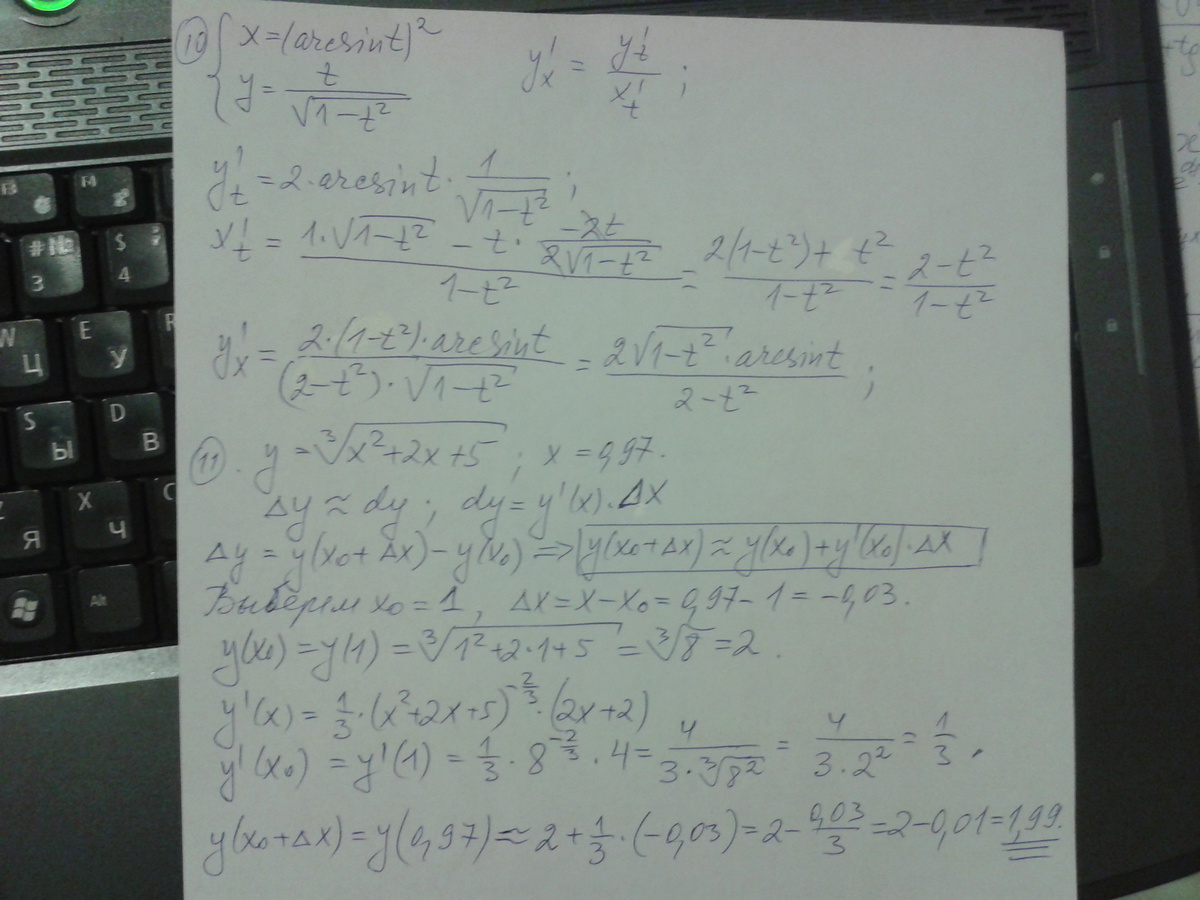 10 { x = (arcsin t)²
y = t / √(1−t²)     y'ₓ = y'ₜ / x'ₜ ;
y'ₜ = 2·arcsin t · 1/√(1−t²) ;
x'ₜ = (1·√(1−t²) − t · (−2t)/(2√(1−t²))) / (1−t²) = (2(1−t²) + t²) / (1−t²) = (2−t²) / (1−t²)
y'ₓ = (2·(1−t²)·arcsin t) / ((2−t²)·√(1−t²)) = (2√(1−t²)·arcsin t) / (2−t²) ;
11. y = ∛(x²+2x+5) ; x = 0,97.
Δy ≈ dy ; dy = y'(x)·Δx
Δy = y(x₀+Δx) − y(x₀) => y(x₀+Δx) ≈ y(x₀) + y'(x₀)·Δx
Выберем x₀ = 1, Δx = x − x₀ = 0,97 − 1 = −0,03.
y(x₀) = y(1) = ∛(1²+2·1+5) = ∛8 = 2.
y'(x) = 1/3 · (x²+2x+5)^(−2/3) · (2x+2)
y'(x₀) = y'(1) = 1/3 · 8^(−2/3) · 4 = 4/(3·∛(8²)) = 4/(3·2²) = 1/3,
y(x₀+Δx) = y(0,97) ≈ 2 + 1/3·(−0,03) = 2 − 0,03/3 = 2 − 0,01 = 1,99.
F4
# № 3
$ 4
W Ц
E У
S Ы
D В
Z Я
X Ч
Alt